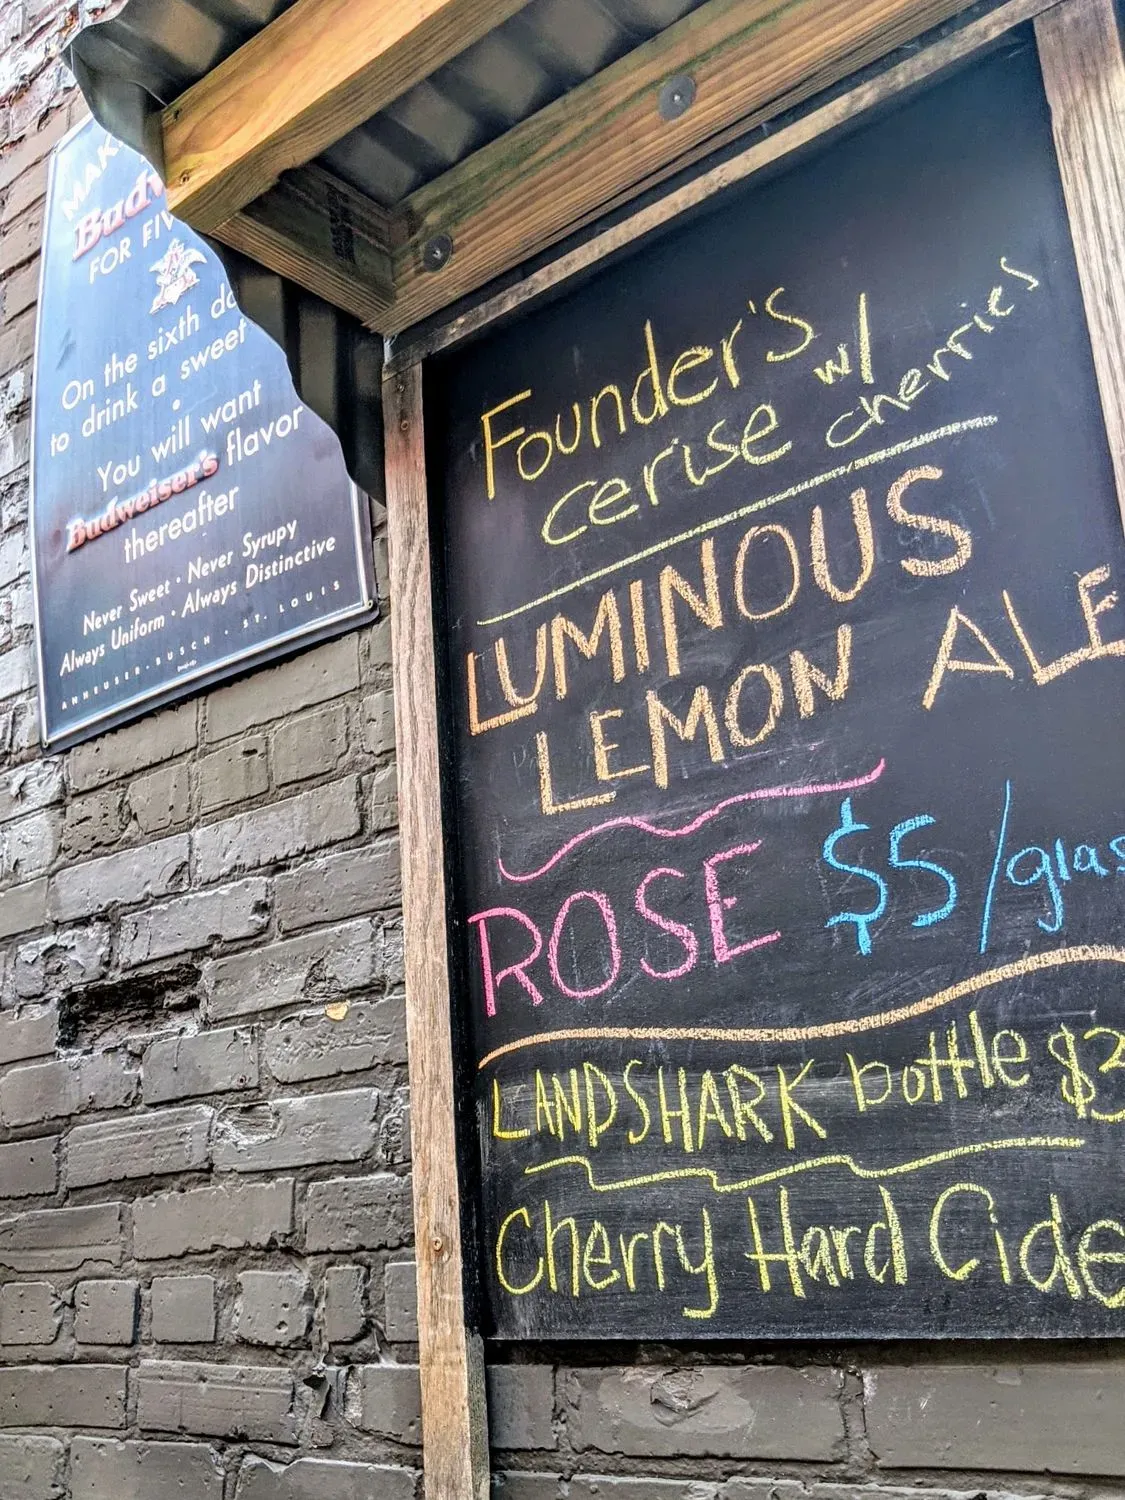 Budw
FOR FIV
On the sixth da
to drink a sweet
You will want
Budweiser's flavor
thereafter
Never Sweet · Never Syrupy
Always Uniform · Always Distinctive
ANHEUSER-BUSCH · ST. LOUIS
Founder's
w/
cerise cherries
LUMINOUS
LEMON ALE
ROSE $5/glas
LANDSHARK bottle $3
Cherry Hard Cide